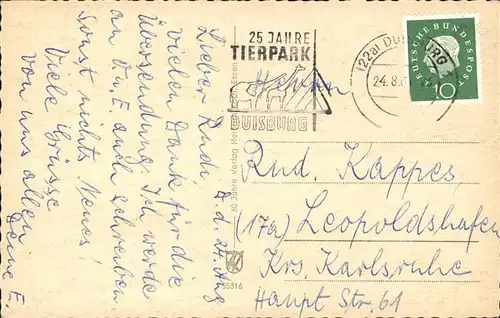 d. 24. Aug
Lieber Rudi!
vielen Dank für die
Übersendung. Ich werde
an D. u. E. auch schreiben.
Sonst nichts Neues!
Viele Grüsse
von uns allen
Deine E.
25 JAHRE
TIERPARK
DUISBURG
(22a) DUISBURG
24.8.
DEUTSCHE BUNDESPOST
10
60 Jahre Verlag Essen
55316
Herrn
Rud. Kappes,
(17a) Leopoldshafen
Krs. Karlsruhe
Haupt Str. 61